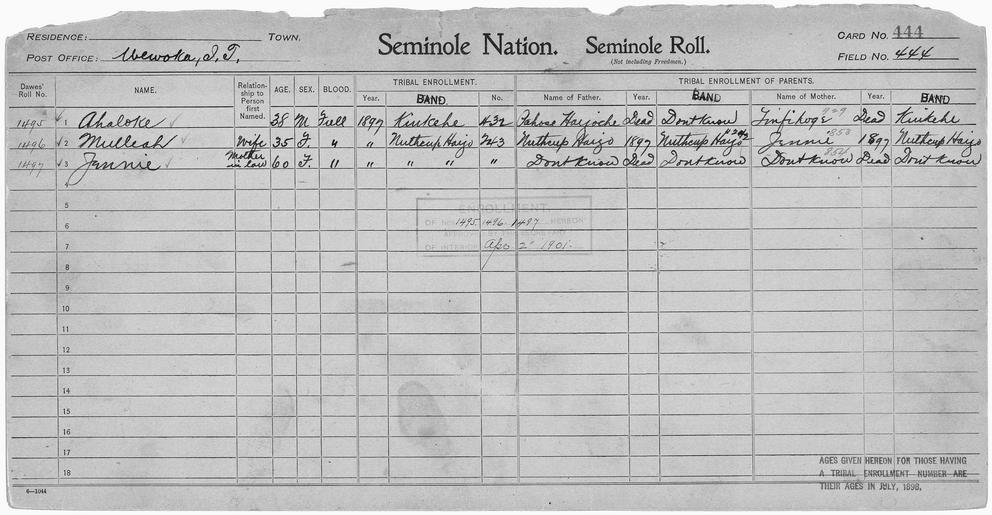 RESIDENCE: TOWN.
Seminole Nation. Seminole Roll.
CARD NO. 444
POST OFFICE: Wewoka, I.T.
(Not including Freedmen.)
FIELD NO. 444
TRIBAL ENROLLMENT. TRIBAL ENROLLMENT OF PARENTS.
Dawes' Roll No. NAME. Relationship to Person first Named. AGE. SEX. BLOOD. Year. BAND. No. Name of Father. Year. BAND Name of Mother. Year. BAND
1495 1 Ahaloke 38 M. Full 1897 Kinkehe Dead Dont Know Dead Kinkehe
1496 2 Mulleah Wife 35 F. " " Nuthcup Hajo 243 Nuthcup Hajo 1897 Nuthcup Hajo Jennie 1897 Nuthcup Hajo
1497 3 Jennie Mother in law 60 F. " " " " " Dont Know Dead Dont Know Dont Know Dead Dont Know
4
5
ENROLLMENT
6
OF NOS. 1495 1496 1497 HEREON
APPROVED BY THE SECRETARY
7
OF INTERIOR Apr 2" 1901.
8
9
10
11
12
13
14
15
16
17
AGES GIVEN HEREON FOR THOSE HAVING
18
A TRIBAL ENROLLMENT NUMBER ARE
THEIR AGES IN JULY, 1898.
6—1044